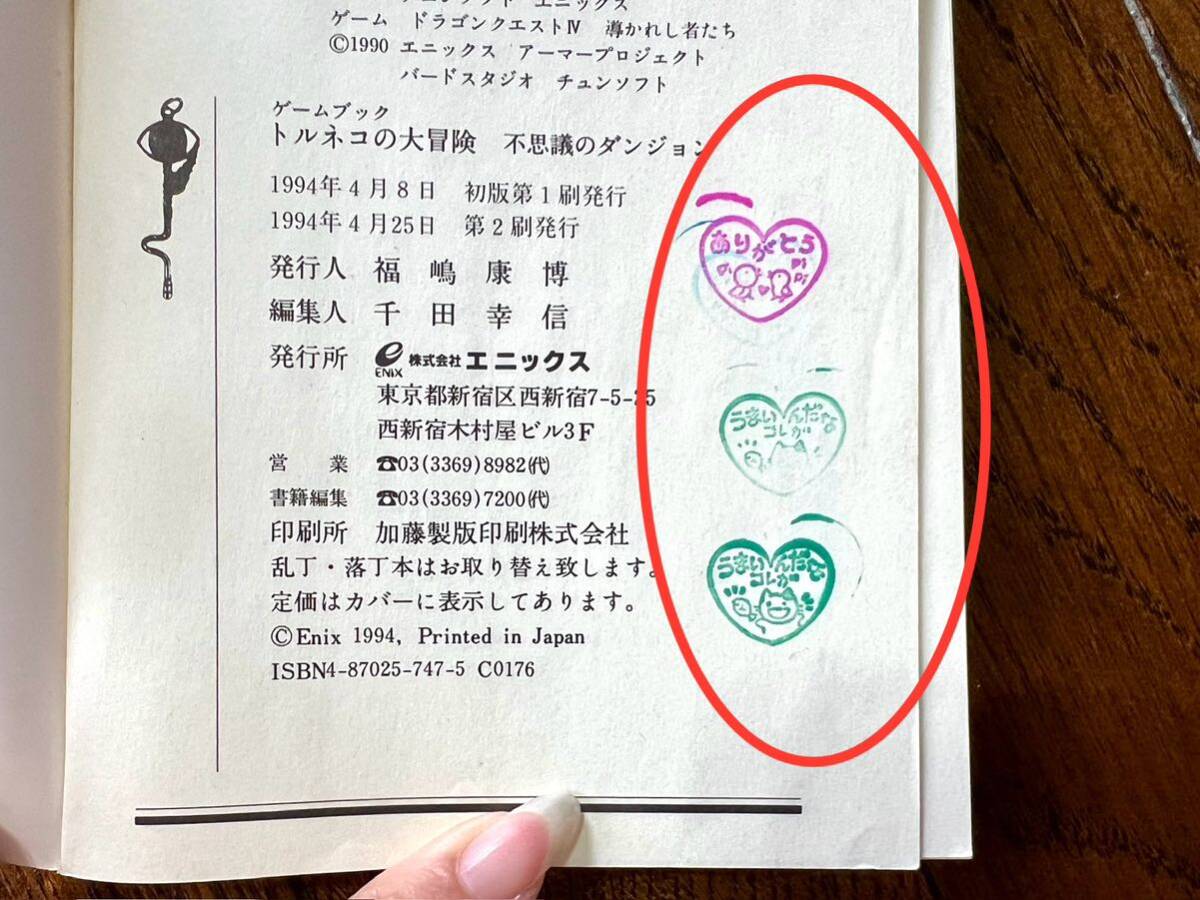 エニックス
ゲーム ドラゴンクエストⅣ 導かれし者たち
©1990 エニックス アーマープロジェクト
バードスタジオ チュンソフト
ゲームブック
トルネコの大冒険 不思議のダンジョン
1994年4月8日 初版第1刷発行
1994年4月25日 第2刷発行
発行人 福嶋康博
編集人 千田幸信
発行所 ENIX 株式会社エニックス
東京都新宿区西新宿7-5-25
西新宿木村屋ビル3F
営業 ☎03(3369)8982㈹
書籍編集 ☎03(3369)7200㈹
印刷所 加藤製版印刷株式会社
乱丁・落丁本はお取り替え致します。
定価はカバーに表示してあります。
©Enix 1994, Printed in Japan
ISBN4-87025-747-5 C0176
ありがとう
うまいんだな
コレが
うまいんだな
コレが